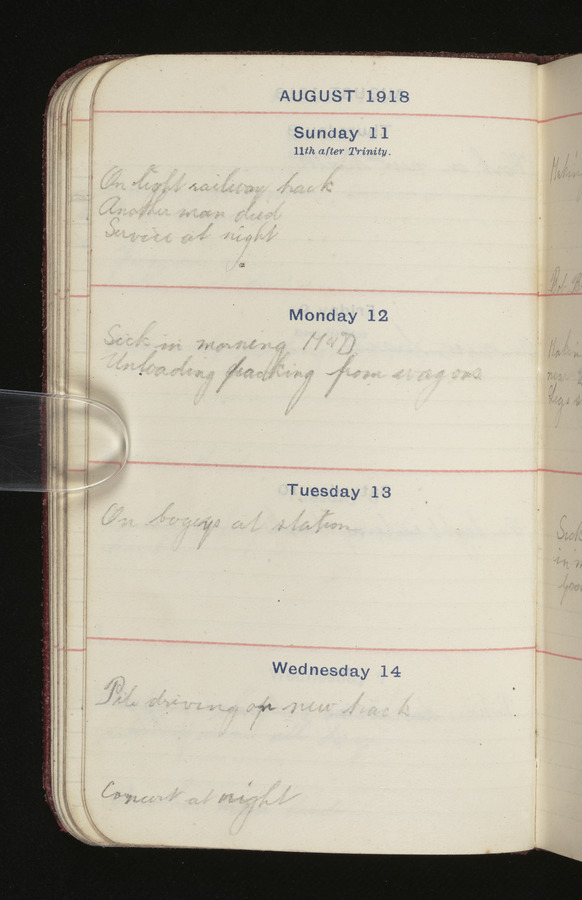 AUGUST 1918
Sunday 11
11th after Trinity.
On light railway track
Another man died
Service at night
Monday 12
Sick in morning M & D
Unloading packing from wagons
Tuesday 13
On bogeys at station
Wednesday 14
Pile driving on new track
Concert at night